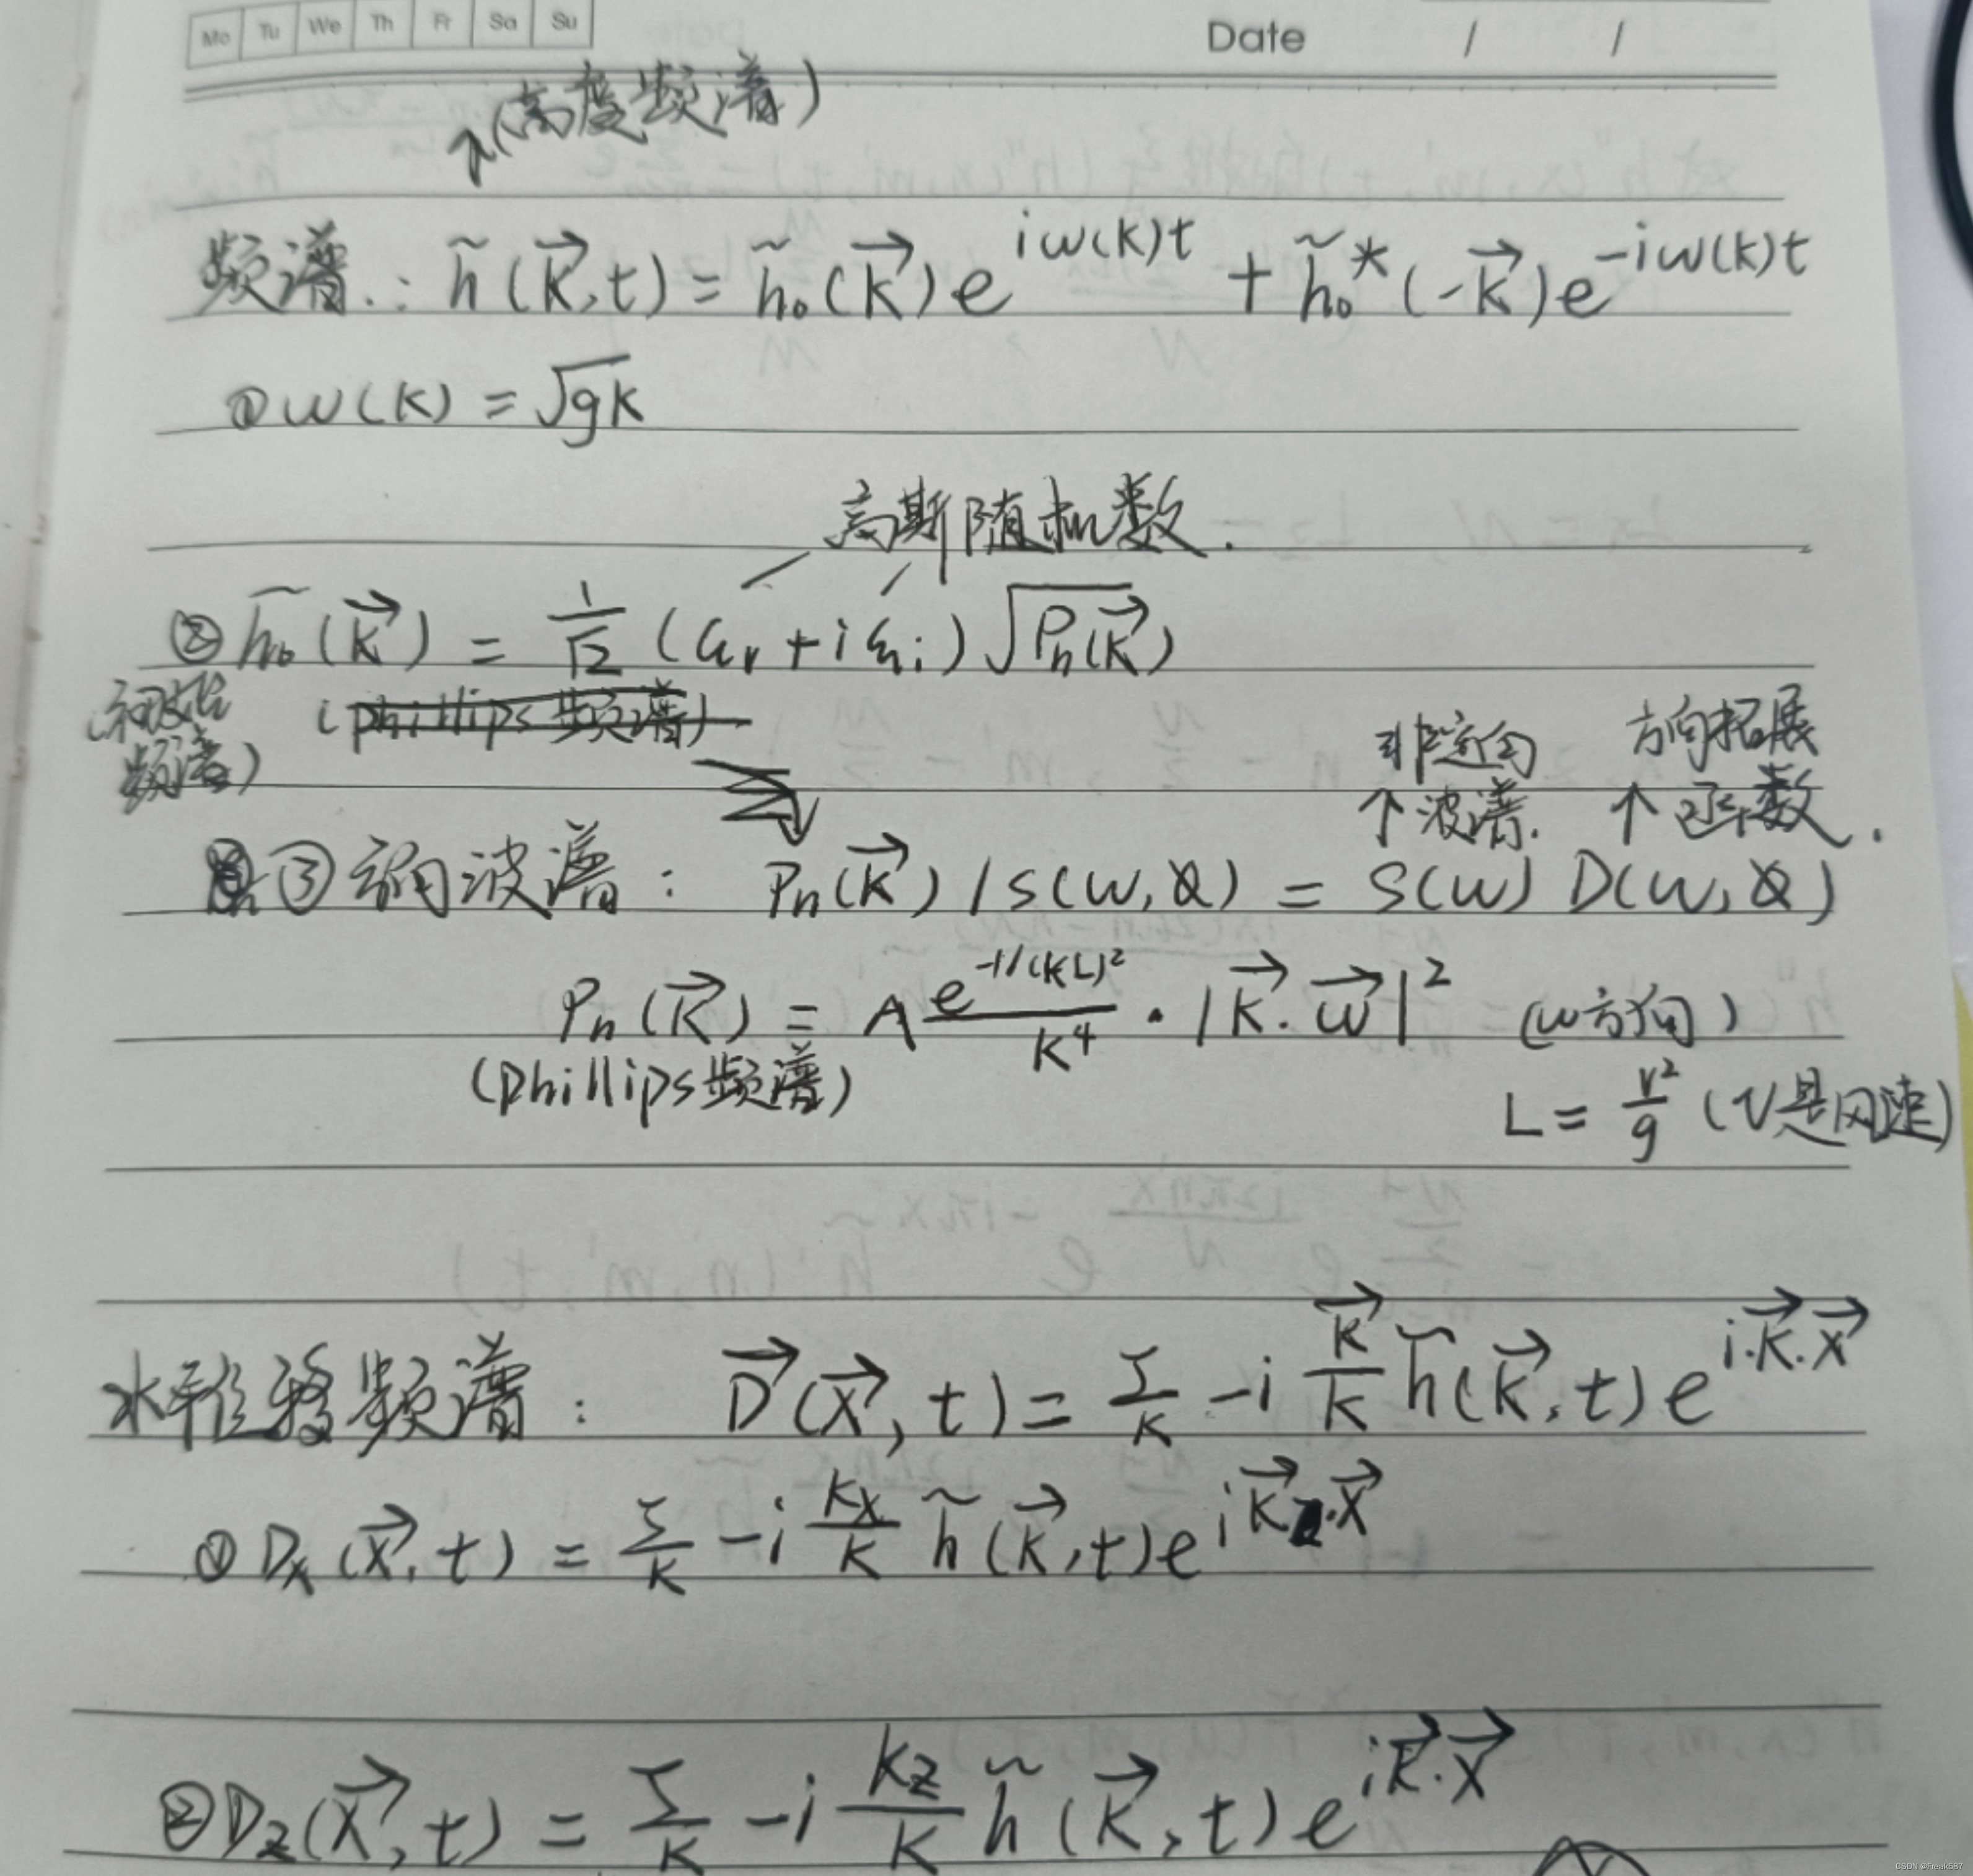 Mo Tu We Th Fr Sa Su
Date / /
↗(高度频谱)
频谱.: h̃(k⃗,t) = h̃₀(k⃗)e^{iω(k)t} + h̃₀*(-k⃗)e^{-iω(k)t}
① ω(k) = √gk
高斯随机数.
② h̃₀(k⃗) = 1/√2 (ξr + iξi) √Ph(k⃗)
(初始频谱) (phillips 频谱)
非定向 方向拓展
↑波谱. ↑函数.
③ 方向波谱: Ph(k⃗) / S(ω, θ) = S(ω) D(ω, θ)
Ph(k⃗) = A e^{-1/(kL)²}/k⁴ · |k⃗·ω⃗|² (ω方向)
(phillips频谱) L = V²/g (V是风速)
水平位移频谱: D⃗(x⃗, t) = Σ_k -i k⃗/k h̃(k⃗, t) e^{i·k⃗·x⃗}
① Dx(x⃗, t) = Σ_k -i kx/k h̃(k⃗, t) e^{ik⃗·x⃗}
② Dz(x⃗, t) = Σ_k -i kz/k h̃(k⃗, t) e^{ik⃗·x⃗}
CSDN @Freak587